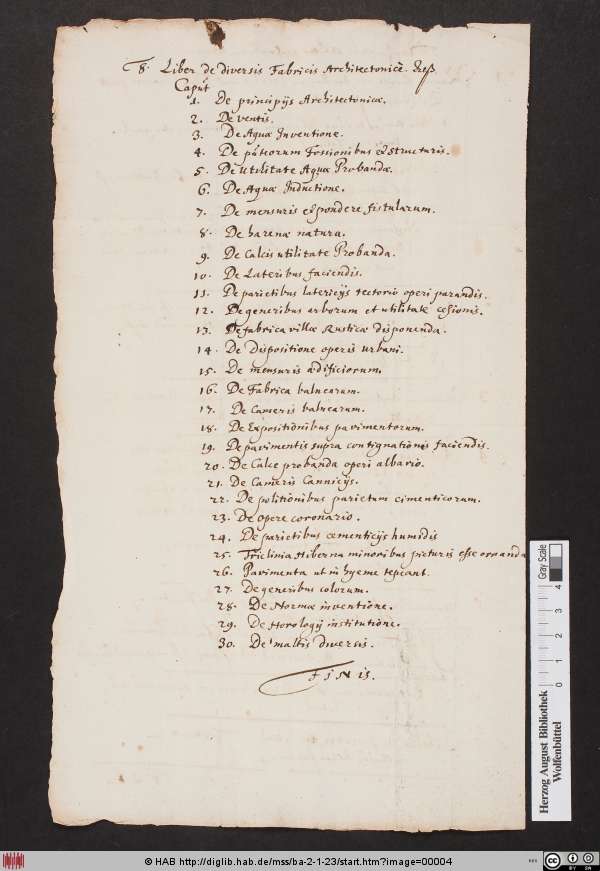 8. Liber de diversis Fabricis Architectonicę.
Caput
1. De principijs Architectonicæ.
2. De ventis.
3. De Aquæ Inventione.
4. De puteorum Fossionibus et structuris.
5. De Utilitate Aquæ Probandæ.
6. De Aquæ Inductione.
7. De mensuris et pondere fistularum.
8. De harenæ natura.
9. De Calcis utilitate Probanda.
10. De Lateribus faciendis.
11. De parietibus latericijs tectorio operi parandis.
12. De generibus arborum et utilitate cesionis.
13. De fabrica villæ Rusticæ disponenda.
14. De Dispositione operis urbani.
15. De mensuris ædificiorum.
16. De Fabrica balnearum.
17. De Cameris balnearum.
18. De Expositionibus pavimentorum.
19. De pavimentis supra contignationes faciendis.
20. De Calce probanda operi albario.
21. De Cameris Cannicijs.
22. De politionibus parietum cimenticorum.
23. De opere coronario.
24. De parietibus cementicijs humidis
25. Triclinia Hiberna minoribus picturis esse ornanda
26. Pavimenta ut in hyeme tepeant.
27. De generibus colorum.
28. De Normæ inventione.
29. De Horologij institutione.
30. De maltis diversis.
FINIS.
Herzog August Bibliothek
Wolfenbüttel
Gray Scale
0 1 2 3 4
© HAB http://diglib.hab.de/mss/ba-2-1-23/start.htm?image=00004
BY SA